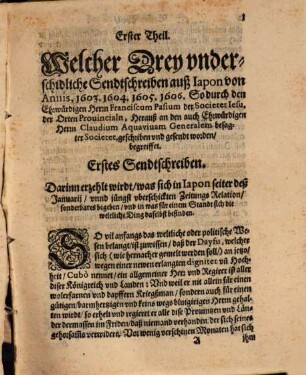 Erster Theil.
Welcher Drey vnder-
schidliche Sendtschreiben auß Iapon von
Annis, 1603. 1604. 1605. 1606. So durch den
Ehrwürdigen Herrn Franciscum Pasium der Societet Iesu,
der Orten Prouincialn, Herauß an den auch Ehrwürdigen
Herrn Claudium Aquauiuam Generalem besag-
ter Societet, geschriben und gesendt worden/
begreiffet.
Erstes Sendtschreiben.
Darinn erzehlt wirdt/ was sich in Iapon seiter deß
Januarij / vnnd jüngst vberschickten Zeitungs Relation/
sonderbares begeben / vnd in was für einem Stande sich die
weltliche Ding daselbst befinden.
SO vil anfangs das weltliche oder politische We-
sen belangt/ ist zuwissen / daß der Dayfu, welcher
sich ( wie hernacher gemelt werden soll/) an jetzo/
wegen einer newen erlangten dignitet vñ Hoch-
heit / Cubò nennet / ein allgemeiner Herr vnd Regierer ist aller
diser Königreich vnd Landen : Vnd weil er nit allein für einen
wolerfarnen vnd dapffern Kriegßman / sondern auch für einen
gütigen barmhertzigen vnd keins wegs blutgeirigen Herrn gehal-
ten wirdt / so erhelt vnd regieret er alle dise Prouintzen vnd Län-
der dermassen im Friden/ daß niemand vorhanden/ der sich seines
gehorsams verwidere/ Vor wenig verschinen Monaten hat sich
A ihm